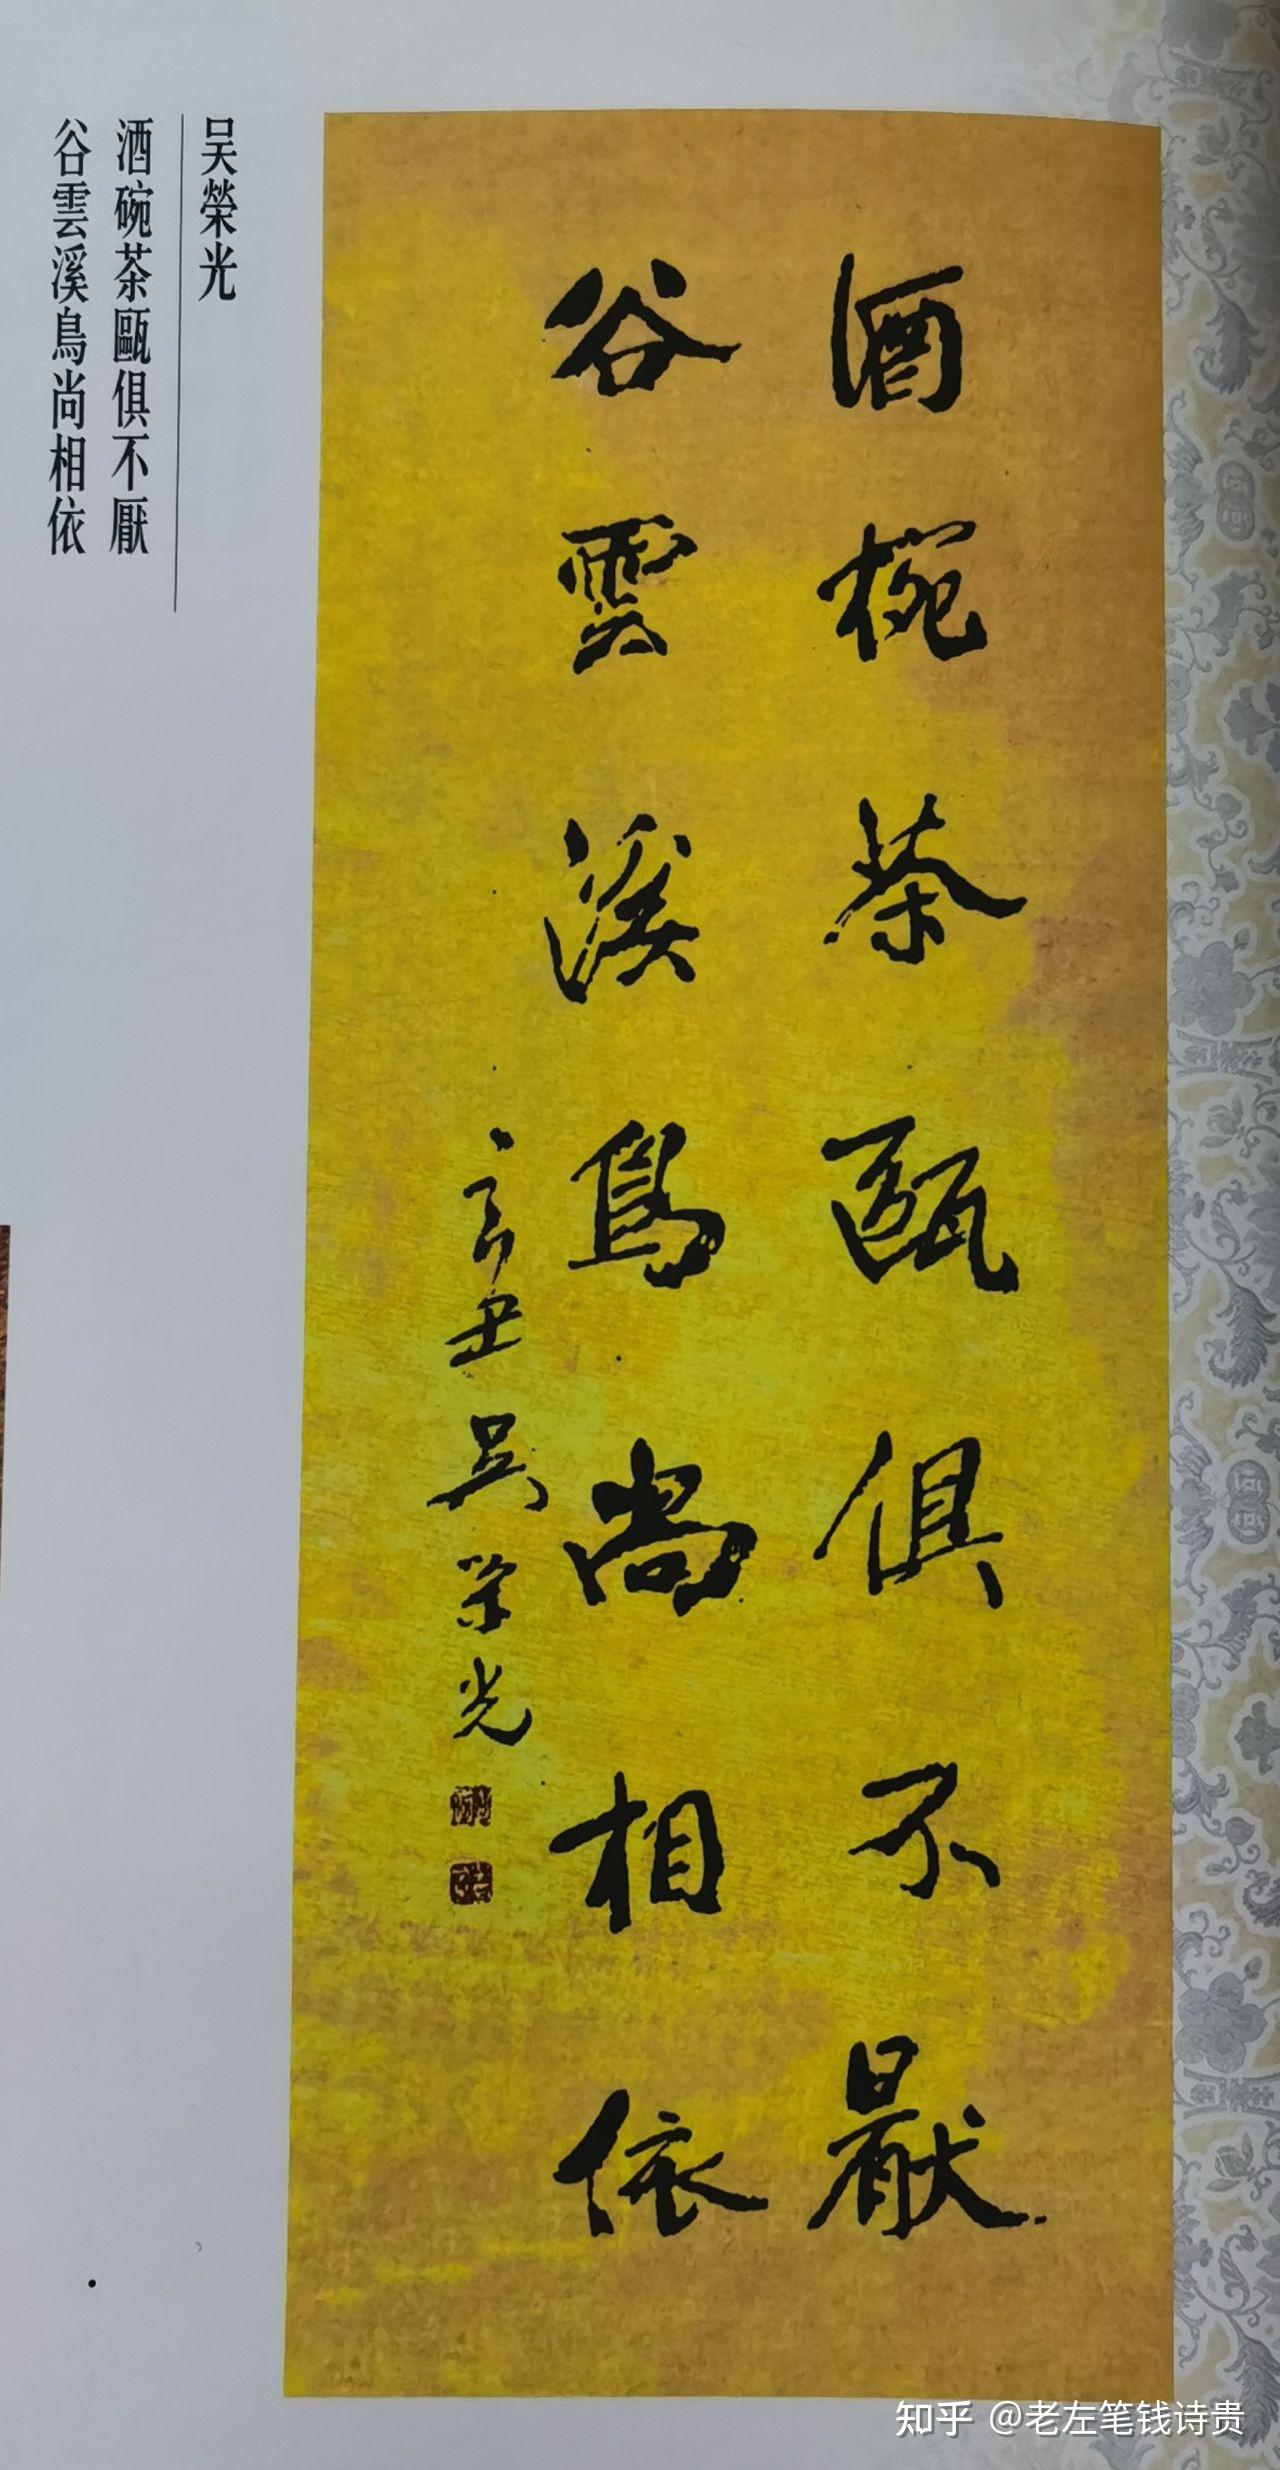 酒椀茶甌俱不厭
谷雲溪鳥尚相依
辛丑吴荣光
吴榮光
酒碗茶甌俱不厭
谷雲溪鳥尚相依
知乎 @老左笔钱诗贵